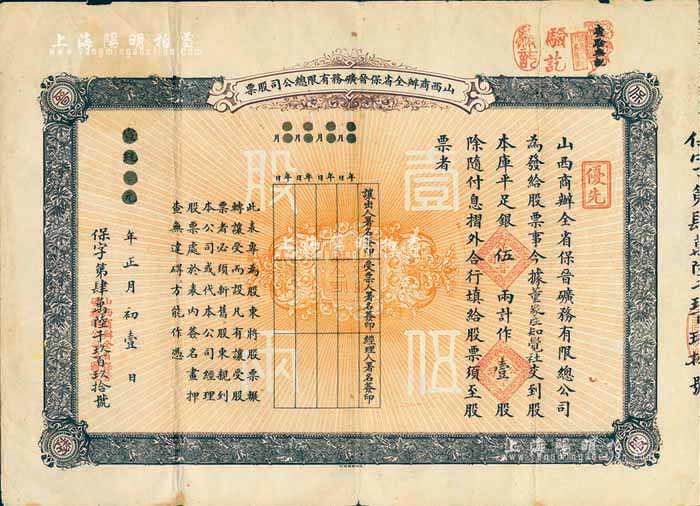 山西商辦全省保晉礦務有限總公司股票
優先
山西商辦全省保晉礦務有限總公司
為發給股票事今據董家庄知覺社交到股
本庫平足銀伍兩計作壹股
除隨付息摺外合行填給股票須至股
票者
壹股
伍兩
讓出人署名簽印
受票人署名簽印
經理人署名簽印
年月日
年月日
年月日
年月日
此表專為股東將股票輾
轉讓受而設凡有讓受股
票者必須新舊股東親到
本公司或代本公司經理
股票處於表內簽名畫押
查無違碍方能作憑
宣統元年正月初壹日
保字第肆萬陸千玖百玖拾號
驗訖
上海陽明拍賣
www.yangmingauction.com
上海陽明拍賣
上海陽明拍賣
www.yangmingauction.com